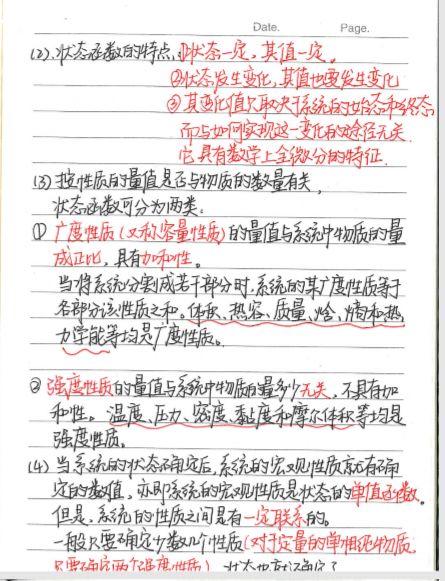 Date. Page.
(2). 状态函数的特点, ①状态一定, 其值一定。
②状态发生变化, 其值也要发生变化
③ 其变化值只取决于系统的始态和终态
而与如何实现这一变化的途径无关.
它具有数学上全微分的特征.
(3) 按性质的量值是否与物质的数量有关,
状态函数可分为两类:
① 广度性质(又称容量性质)的量值与系统中物质的量
成正比, 具有加和性。
当将系统分割成若干部分时, 系统的某广度性质等于
各部分该性质之和。体积、热容、质量、焓、熵和热
力学能等均是广度性质。
② 强度性质的量值与系统中物质的量多少无关, 不具有加
和性。温度、压力、密度、黏度和摩尔体积等均是
强度性质。
(4) 当系统的状态确定后, 系统的宏观性质就有确
定的数值, 亦即系统的宏观性质是状态的单值函数.
但是, 系统的性质之间是有一定联系的。
一般只要确定少数几个性质(对于定量的单相纯物质,
只要确定两个强度性质), 状态也就确定了